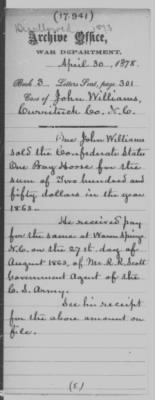 (17.941)
Disallowed 1878
Archive Office,
WAR DEPARTMENT,
April 30, 1878.
Book 3 Letters Sent, page 301
Case of John Williams,
Currituck Co. N.C.
One John Williams
sold the Confederate States
One Bay Horse for the
sum of Five hundred and
fifty dollars in the year
1863.
He received pay
for the same at Warm Springs
N.C. on the 27th day of
August 1863, of Mr. R.R. Scott
Government Agent of the
C.S. Army.
See his receipt
for the above amount on
file.
(5)